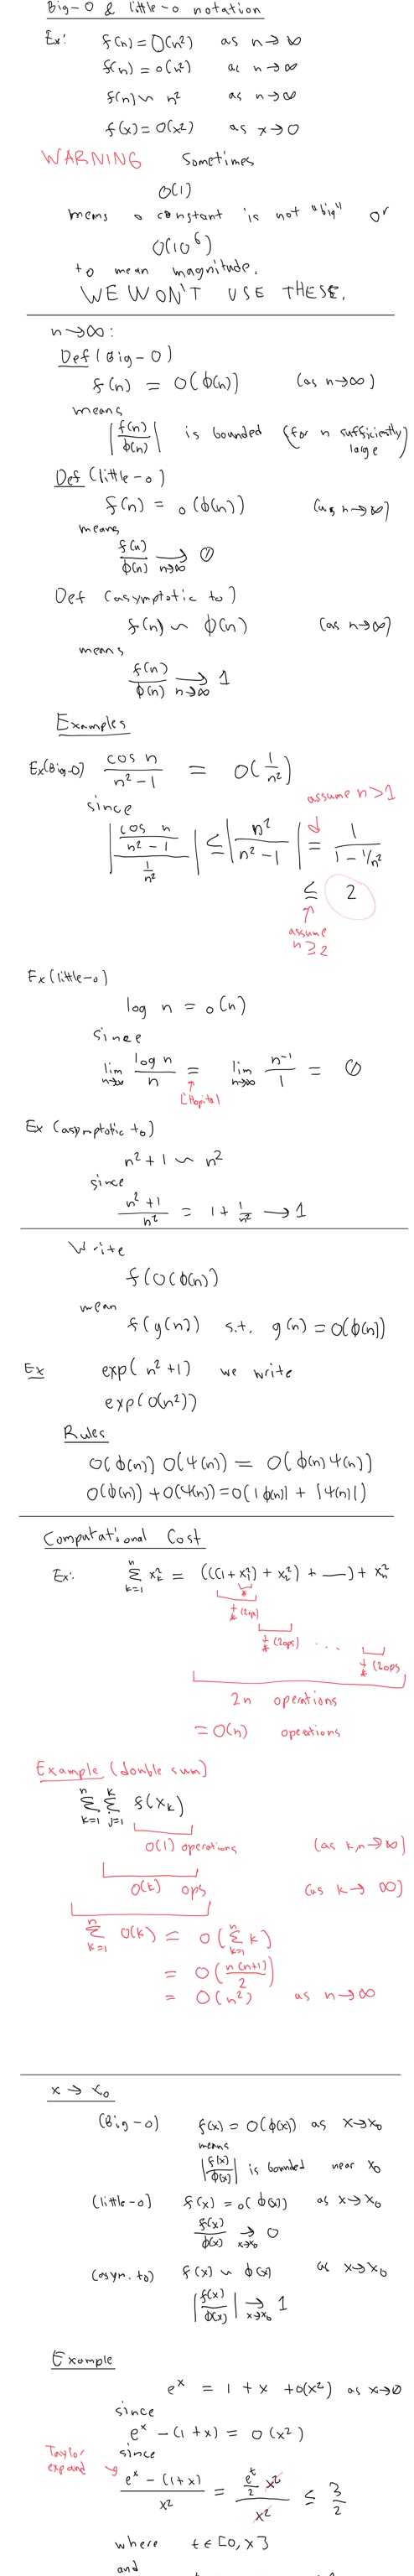 Big-O & little-o notation
Ex: f(n) = O(n²) as n→∞
f(n) = o(n²) as n→∞
f(n) ~ n² as n→∞
f(x) = O(x²) as x→0
WARNING Sometimes
O(1)
means a constant is not "big" or
O(10⁶)
to mean magnitude.
WE WON'T USE THESE.
n→∞:
Def (Big-O)
f(n) = O(ϕ(n)) (as n→∞)
means
|f(n)/ϕ(n)| is bounded (for n sufficiently large)
Def (little-o)
f(n) = o(ϕ(n)) (as n→∞)
means
f(n)/ϕ(n) → 0 n→∞
Def (asymptotic to)
f(n) ~ ϕ(n) (as n→∞)
means
f(n)/ϕ(n) → 1 n→∞
Examples
Ex(Big-O) cos n/(n²-1) = O(1/n²)
since
assume n>1
|(cos n/(n²-1))/(1/n²)| ≤ |n²/(n²-1)| = 1/(1-1/n²)
≤ 2
assume
n≥2
Ex (little-o)
log n = o(n)
since
lim n→∞ log n/n = lim n→∞ n⁻¹/1 = 0
L'Hopital
Ex (asymptotic to)
n²+1 ~ n²
since
(n²+1)/n² = 1 + 1/n² → 1
Write
f(O(ϕ(n)))
mean
f(g(n)) s.t. g(n) = O(ϕ(n))
Ex exp(n²+1) we write
exp(O(n²))
Rules
O(ϕ(n)) O(ψ(n)) = O(ϕ(n)ψ(n))
O(ϕ(n)) + O(ψ(n)) = O(|ϕ(n)| + |ψ(n)|)
Computational Cost
Ex: Σ k=1 n xₖ² = (((1 + x₁²) + x₂²) + —) + xₙ²
*
+ * (2ops)
+ * (2ops) ... + * (2ops
2n operations
= O(n) operations
Example (double sum)
Σ k=1 n Σ j=1 k f(xₖ)
O(1) operations (as k,n→∞)
O(k) ops (as k→∞)
Σ k=1 n O(k) = O(Σ k=1 n k)
= O(n(n+1)/2)
= O(n²) as n→∞
x→x₀
(Big-O) f(x) = O(ϕ(x)) as x→x₀
means
|f(x)/ϕ(x)| is bounded near x₀
(little-o) f(x) = o(ϕ(x)) as x→x₀
f(x)/ϕ(x) → 0 x→x₀
(asym. to) f(x) ~ ϕ(x) as x→x₀
|f(x)/ϕ(x)| → 1 x→x₀
Example
eˣ = 1 + x + O(x²) as x→0
since
eˣ - (1+x) = O(x²)
Taylor expand
since
(eˣ - (1+x))/x² = (eᵗ/2 x²)/x² ≤ 3/2
where t∈[0,x]
and